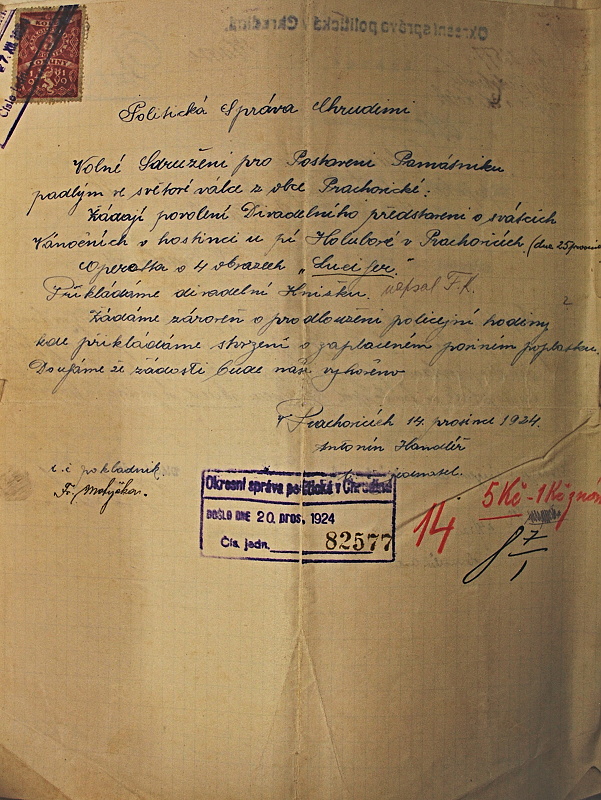 Okresní správa politická v Chrudimi.
7. XI.
Číslo
KOLEK
KORUNY
Politická Správa Chrudimi
Volné Sdružení pro Postavení Památníku
padlým ve světové válce z obce Prachovické:
Žádají povolení Divadelního představení o svátcích
Vánočních v hostinci u pí Holubové v Prachovicích. (dne 25 prosince
Operetta o 4 obrazech „Lucifer."
Přikládáme divadelní Knížku. napsal F. K.
Žádáme zároveň o prodloužení policejní hodiny
kde přikládáme stvrzení o zaplaceném poplatku.
Doufáme že žádosti bude naší vyhověno
V Prachovicích 14. prosince 1924.
Antonín Handlíř
jednatel.
t. č. pokladník
Fr.
Okresní správa politická v Chrudimi
DOŠLO DNE 20. pros. 1924
Čís. jedn. 82577
14
5 Kč - 1 Kč
7
1